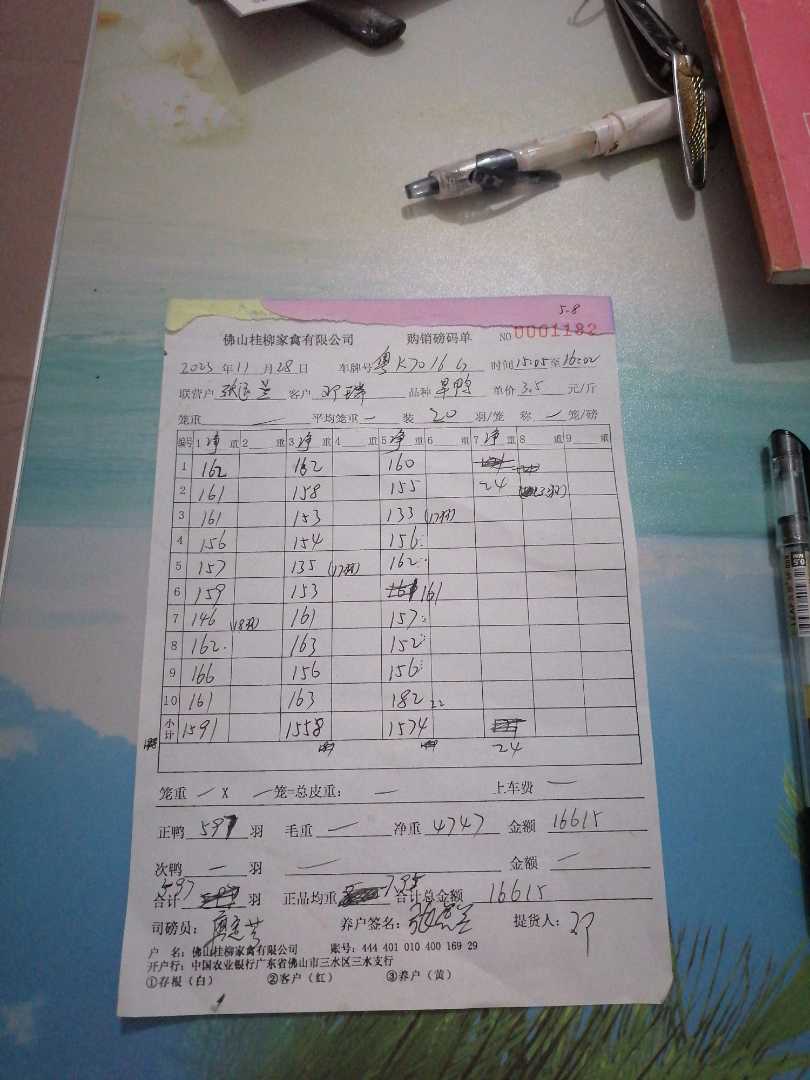 5.8
佛山桂柳家禽有限公司 购销磅码单 NO 0001182
2023 年 11 月 28 日 车牌号 粤K7016G 时间 15:05 至 16:02
联营户 客户 邓 品种 旱鸭 单价 3.5 元/斤
笼重 — 平均笼重 — 装 20 羽/笼 称 — 笼/磅
编号 1 净 重 2 重 3 净 重 4 重 5 净 重 6 重 7 净 重 8 重 9 重
1 162 162 160
2 161 158 155 24
3 161 153 133 (17羽)
4 156 154 156
5 157 135 (17羽) 162
6 159 153 161
7 146 (18羽) 161 157
8 162 163 152
9 166 156 156
10 161 163 182 22
小计 1591 1558 1574
24
笼重 — X — 笼=总皮重: — 上车费 —
正鸭 597 羽 毛重 — 净重 4747 金额 16615
次鸭 — 羽 — 金额 —
合计 597 羽 正品均重 7.95 合计总金额 16615
司磅员: 养户签名: 提货人: 邓
户 名: 佛山桂柳家禽有限公司 账号: 444 401 010 400 169 29
开户行: 中国农业银行广东省佛山市三水区三水支行
①存根(白) ②客户(红) ③养户(黄)